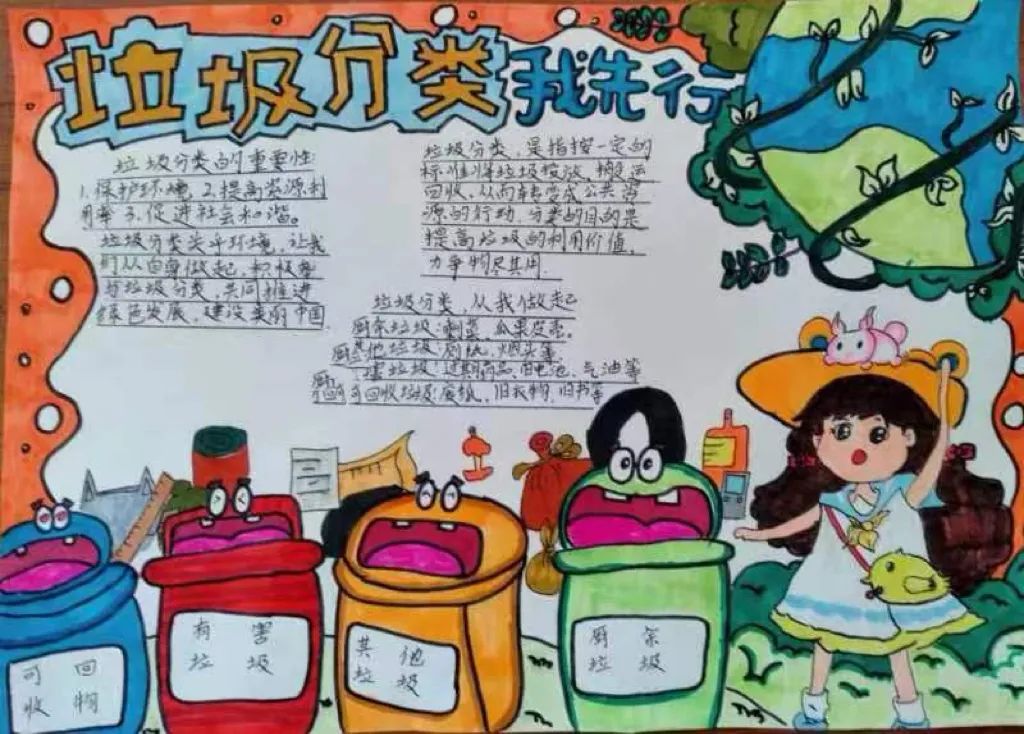 垃圾分类 我先行
垃圾分类的重要性:
1.保护环境 2.提高资源利
用率 3.促进社会和谐。
垃圾分类关乎环境,让我
们从自身做起,积极参
与垃圾分类,共同推进
绿色发展,建设美丽中国
垃圾分类,是指按一定的
标准将垃圾投放、搬运
回收、从而转变成公共资
源的行动,分类的目的是
提高垃圾的利用价值,
力争物尽其用.
垃圾分类,从我做起
厨余垃圾:剩菜、瓜果皮壳。
其他垃圾:厕纸、烟头等
害垃圾:过期药品、旧电池、气油等
可回收垃圾:废纸、旧衣物、旧书等
可回
收物
有害
垃圾
其他
垃圾
厨余
垃圾